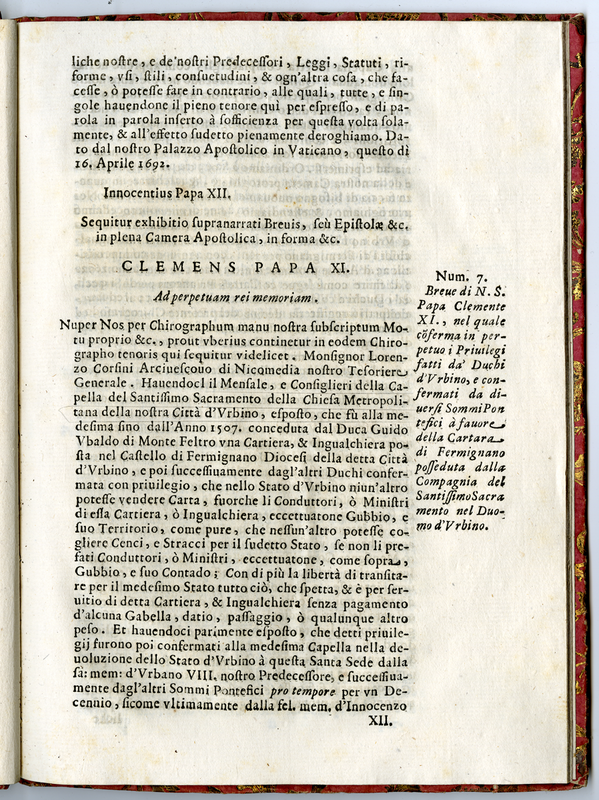 liche nostre, e de'nostri Predecessori, Leggi, Statuti, ri-
forme, vsi, stili, consuetudini, & ogn'altra cosa, che fa-
cesse, ò potesse fare in contrario, alle quali, tutte, e sin-
gole hauendone il pieno tenore quì per espresso, e di pa-
rola in parola inserto à sofficienza per questa volta sola-
mente, & all'effetto sudetto pienamente deroghiamo. Da-
to dal nostro Palazzo Apostolico in Vaticano, questo dì
16. Aprile 1692.
Innocentius Papa XII.
Sequitur exhibitio supranarrati Breuis, seù Epistolæ &c.
in plena Camera Apostolica, in forma &c.
CLEMENS PAPA XI.
Ad perpetuam rei memoriam.
Nuper Nos per Chirographum manu nostra subscriptum Mo-
tu proprio &c., prout vberius continetur in eodem Chiro-
grapho tenoris qui sequitur videlicet. Monsignor Loren-
zo Corsini Arciuescouo di Nicomedia nostro Tesoriere
Generale. Hauendoci il Mensale, e Consiglieri della Ca-
pella del Santissimo Sacramento della Chiesa Metropoli-
tana della nostra Città d'Vrbino, esposto, che fù alla me-
desima sino dall'Anno 1507. conceduta dal Duca Guido
Vbaldo di Monte Feltro vna Cartiera, & Ingualchiera po-
sta nel Castello di Fermignano Diocesi della detta Città
d'Vrbino, e poi successiuamente dagl'altri Duchi confer-
mata con priuilegio, che nello Stato d'Vrbino niun'altro
potesse vendere Carta, fuorche li Conduttori, ò Ministri
di essa Cartiera, ò Ingualchiera, eccettuatone Gubbio, e
suo Territorio, come pure, che nessun'altro potesse co-
gliere Cenci, e Stracci per il sudetto Stato, se non li pre-
fati Conduttori, ò Ministri, eccettuatone, come sopra,
Gubbio, e suo Contado; Con di più la libertà di transita-
re per il medesimo Stato tutto ciò, che spetta, & è per ser-
uitio di detta Cartiera, & Ingualchiera senza pagamento
d'alcuna Gabella, datio, passaggio, ò qualunque altro
peso. Et hauendoci parimente esposto, che detti priuile-
gij furono poi confermati alla medesima Capella nella de-
uoluzione dello Stato d'Vrbino à questa Santa Sede dalla
sa: mem: d'Vrbano VIII. nostro Predecessore, e successiua-
mente dagl'altri Sommi Pontefici pro tempore per vn De-
cennio, sicome vltimamente dalla fel. mem. d'Innocenzo
XII.
Num. 7.
Breue di N. S.
Papa Clemente
XI., nel quale
cõferma in per-
petuo i Priuilegi
fatti da' Duchi
d'Vrbino, e con-
fermati da di-
uersi Sommi Pon
tefici à fauore
della Cartara
di Fermignano
posseduta dalla
Compagnia del
Santissimo Sacra
mento nel Duo-
mo d'Vrbino.